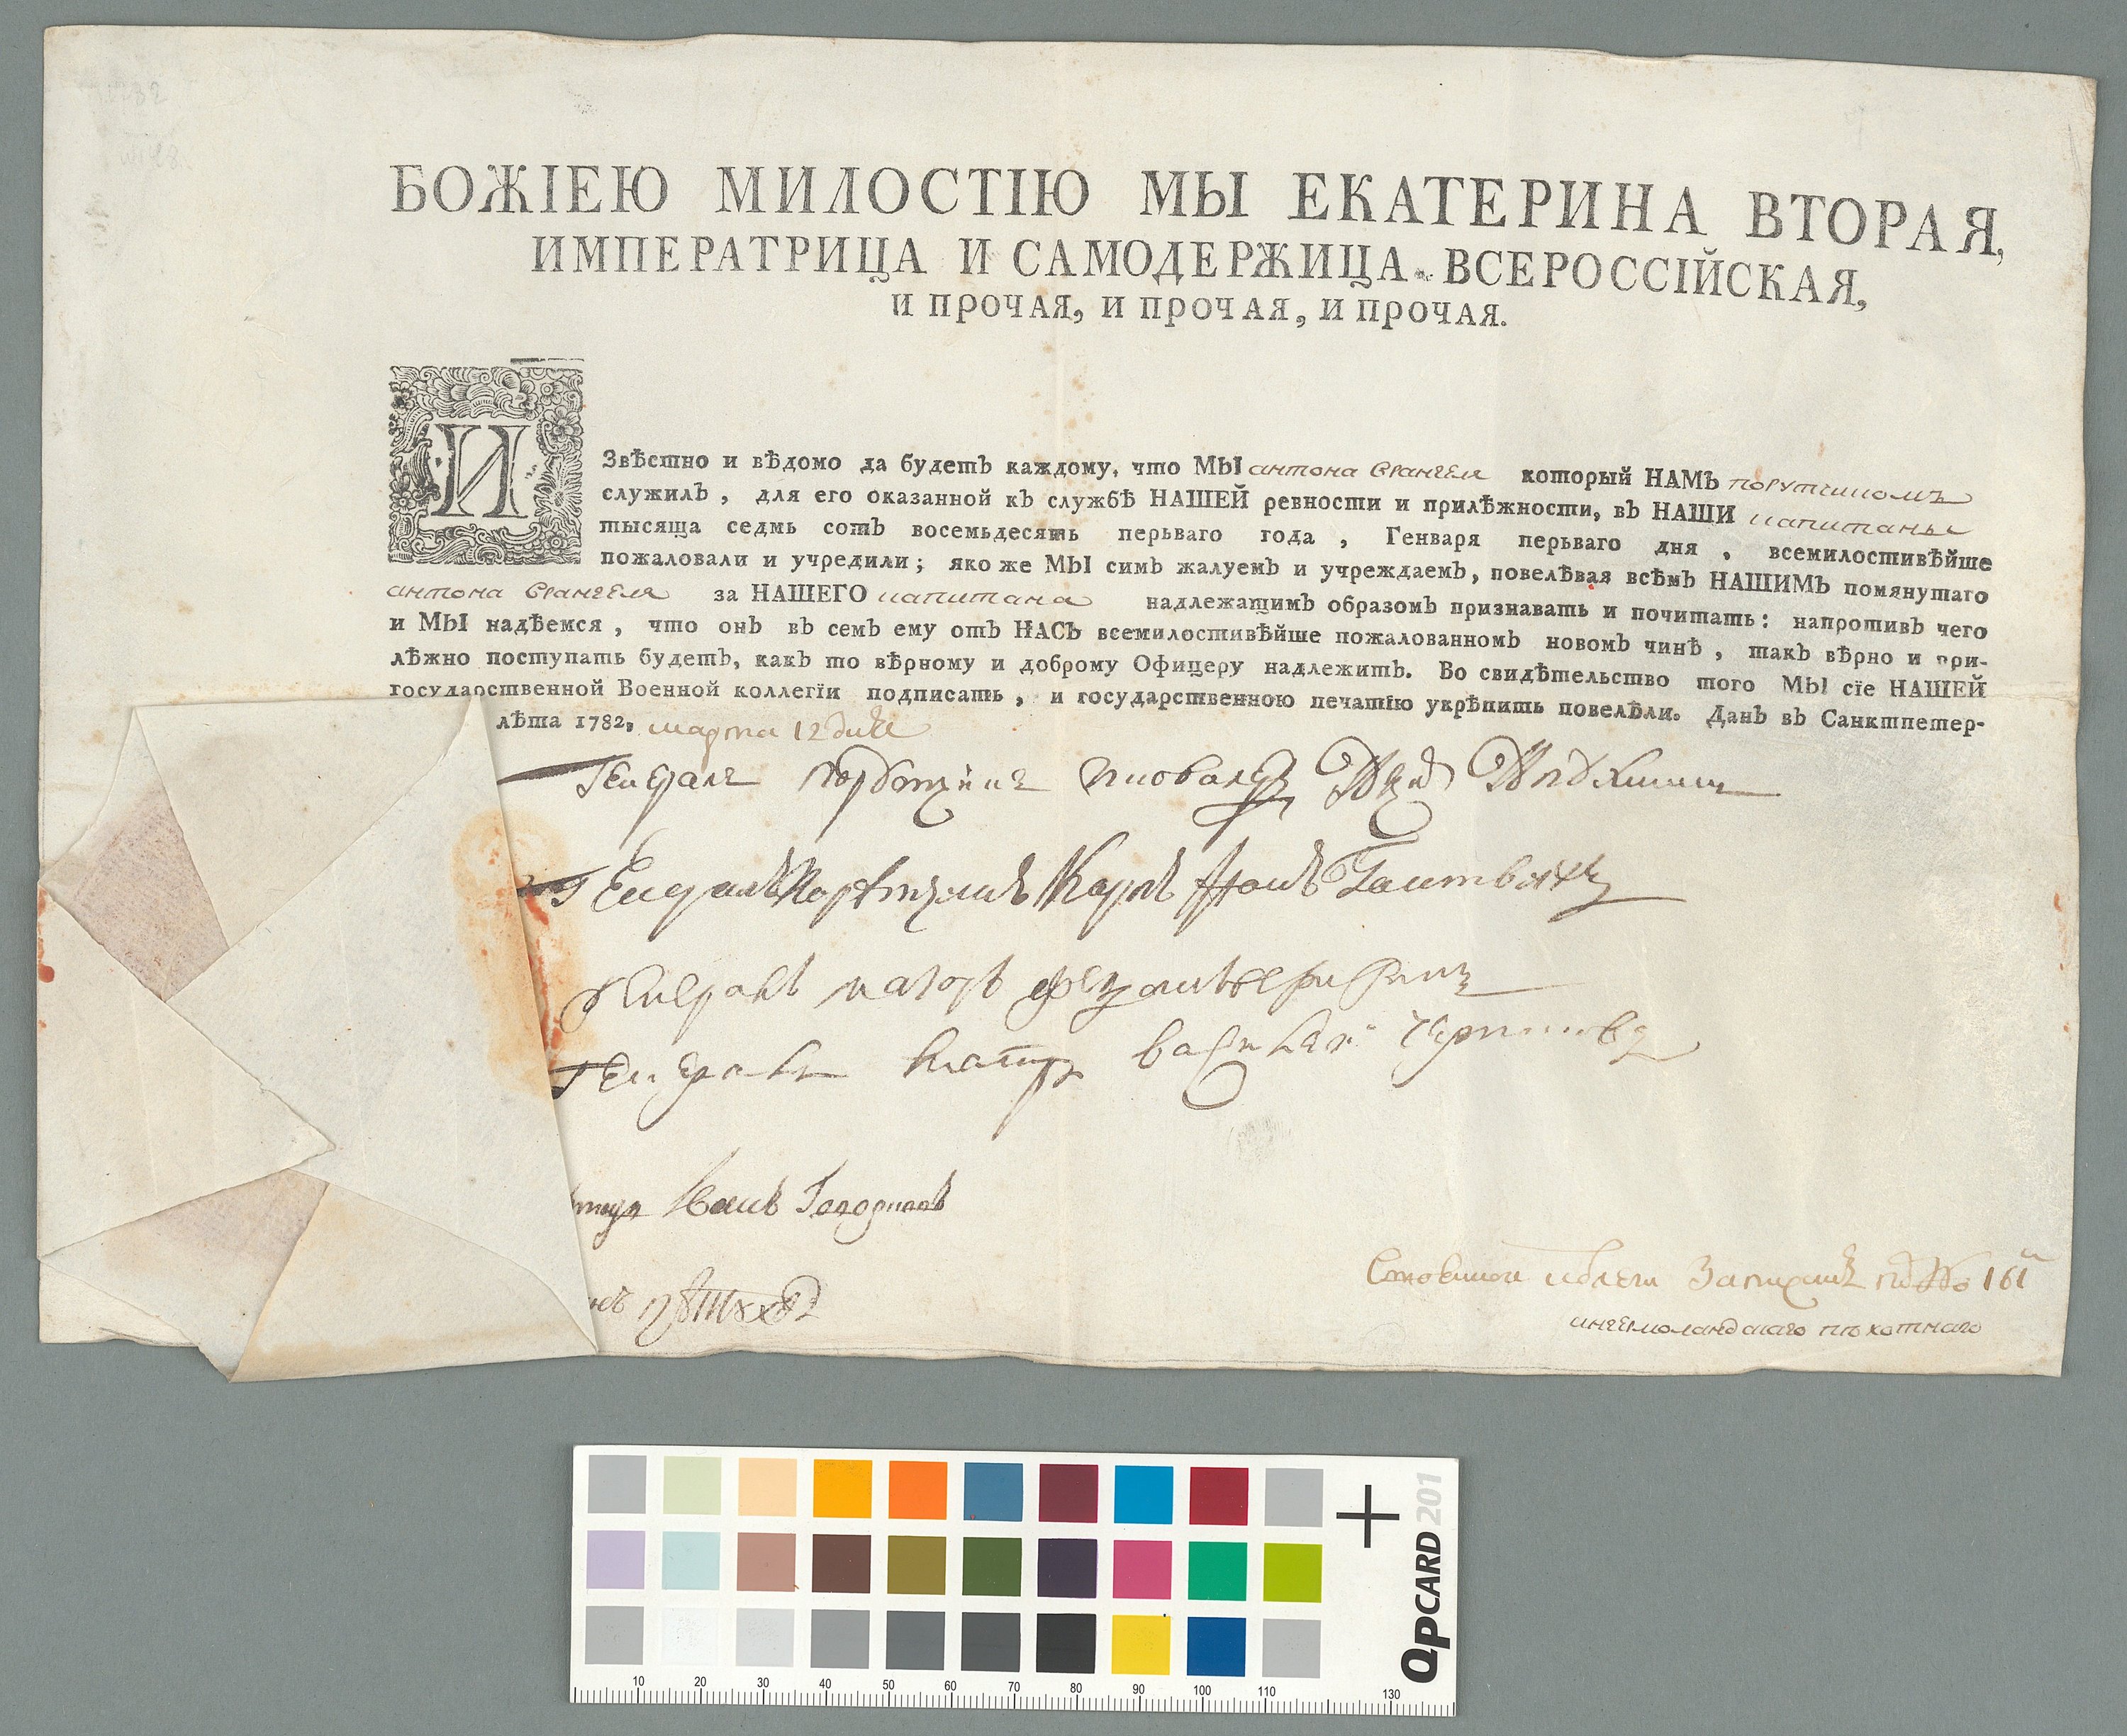 БОЖІЕЮ МИЛОСТІЮ МЫ ЕКАТЕРИНА ВТОРАЯ,
ИМПЕРАТРИЦА И САМОДЕРЖИЦА ВСЕРОССІЙСКАЯ,
И ПРОЧАЯ, И ПРОЧАЯ, И ПРОЧАЯ.
ИЗвѣстно и вѣдомо да будетъ каждому, что МЫ антона врангеля который НАМЪ порутчикомъ
служилъ, для его оказанной къ службѣ НАШЕЙ ревности и прилѣжности, въ НАШИ капитаны
тысяща седмь сотъ восемьдесятъ перьваго года, Генваря перьваго дня, всемилостивѣйше
пожаловали и учредили; яко же МЫ симъ жалуемъ и учреждаемъ, повелѣвая всѣмъ НАШИМЪ помянутаго
антона врангеля за НАШЕГО капитана надлежащимъ образомъ признавать и почитать: напротивъ чего
и МЫ надѣемся, что онъ въ семъ ему отъ НАСЪ всемилостивѣйше пожалованномъ новомъ чинѣ, такъ вѣрно и при-
лѣжно поступать будетъ, какъ то вѣрному и доброму Офицеру надлежитъ. Во свидѣтельство того МЫ сіе НАШЕЙ
государственной Военной коллегіи подписать, и государственною печатію укрѣпить повелѣли. Данъ въ Санктпетер-
лѣта 1782, марта 12 дня
Генералъ
Генералъ Карлъ
Генералъ маіоръ
Генералъ Василей
Иванъ
161
ингермоландскаго пѣхотнаго
QPCARD 201
10 20 30 40 50 60 70 80 90 100 110 130